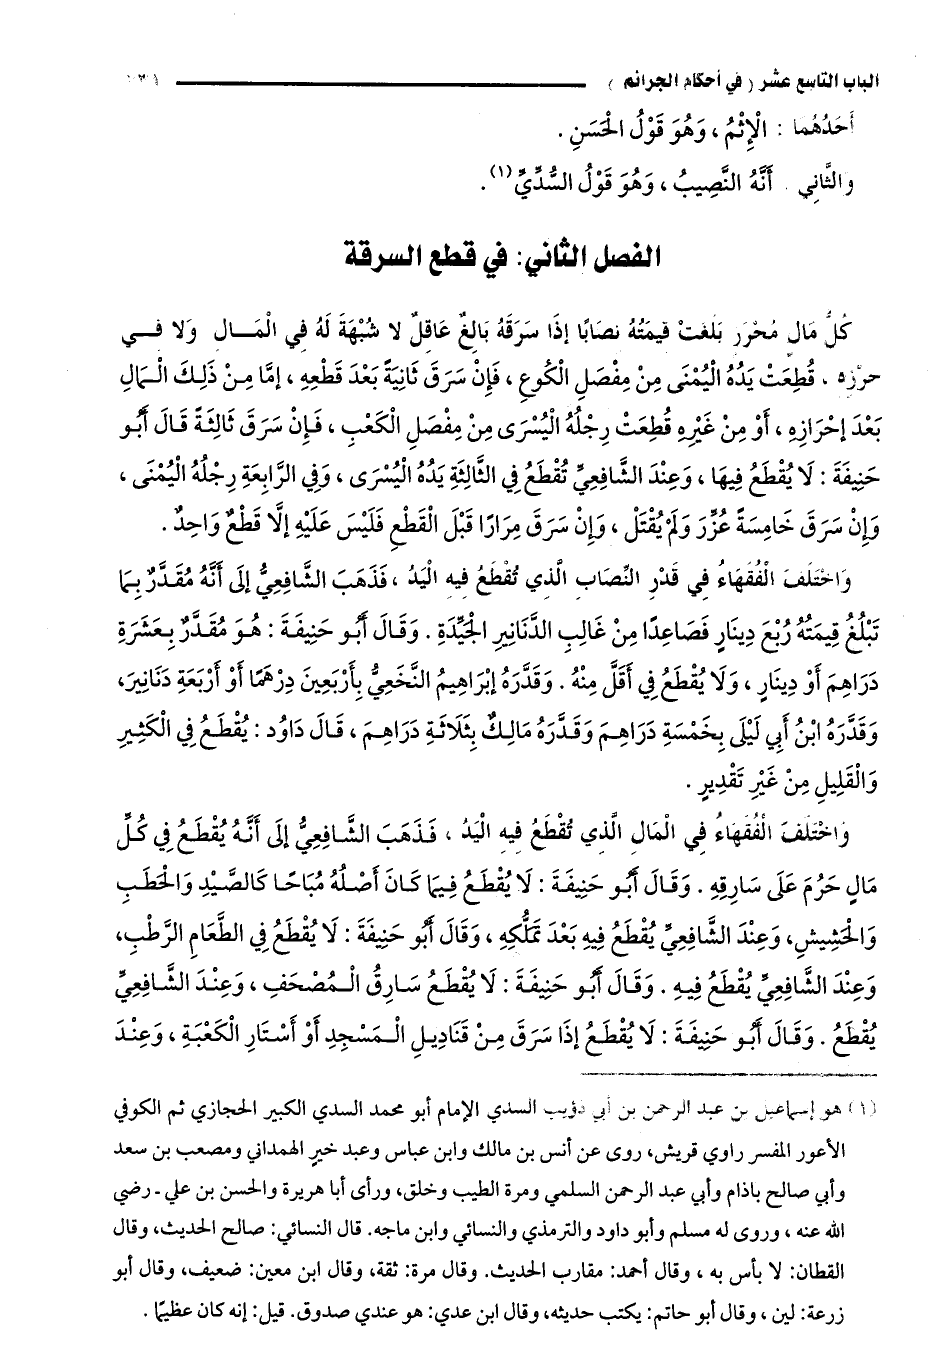 الباب التاسع عشر ( في أحكام الجرائم )
أَحَدُهُمَا : الْإِثْمُ ، وَهُوَ قَوْلُ الْحَسَنِ .
وَالثَّانِي . أَنَّهُ النَّصِيبُ ، وَهُوَ قَوْلُ السُّدِّيِّ(١).
الفصل الثاني: في قطع السرقة
كُلُّ مَالٍ مُحْرَزٍ بَلَغَتْ قِيمَتُهُ نِصَابًا إذَا سَرَقَهُ بَالِغٌ عَاقِلٌ لَا شُبْهَةَ لَهُ فِي الْمَـــالِ وَلَا فِـــي
حِرْزِهِ . قُطِعَتْ يَدُهُ الْيُمْنَى مِنْ مِفْصَلِ الْكُوعِ ، فَإِنْ سَرَقَ ثَانِيَةً بَعْدَ قَطْعِهِ ، إمَّا مِنْ ذَلِكَ الْمَالِ
بَعْدَ إحْرَازِهِ ، أَوْ مِنْ غَيْرِهِ قُطِعَتْ رِجْلُهُ الْيُسْرَى مِنْ مِفْصَلِ الْكَعْبِ ، فَإِنْ سَرَقَ ثَالِثَةً قَالَ أَبُو
حَنِيفَةَ : لَا يُقْطَعُ فِيهَا ، وَعِنْدَ الشَّافِعِيِّ تُقْطَعُ فِي الثَّالِثَةِ يَدُهُ الْيُسْرَى ، وَفِي الرَّابِعَةِ رِجْلُهُ الْيُمْنَى ،
وَإِنْ سَرَقَ خَامِسَةً عُزِّرَ وَلَمْ يُقْتَلْ ، وَإِنْ سَرَقَ مِرَارًا قَبْلَ الْقَطْعِ فَلَيْسَ عَلَيْهِ إلَّا قَطْعٌ وَاحِدٌ .
وَاخْتَلَفَ الْفُقَهَاءُ فِي قَدْرِ النِّصَابِ الَّذِي تُقْطَعُ فِيهِ الْيَدُ ، فَذَهَبَ الشَّافِعِيُّ إلَى أَنَّهُ مُقَدَّرٌ بِمَا
تَبْلُغُ قِيمَتُهُ رُبْعَ دِينَارٍ فَصَاعِدًا مِنْ غَالِبِ الدَّنَانِيرِ الْجَيِّدَةِ . وَقَالَ أَبُو حَنِيفَةَ : هُوَ مُقَدَّرٌ بِعَشَرَةِ
دَرَاهِمَ أَوْ دِينَارٍ ، وَلَا يُقْطَعُ فِي أَقَلَّ مِنْهُ . وَقَدَّرَهُ إبْرَاهِيمُ النَّخَعِيُّ بِأَرْبَعِينَ دِرْهَمًا أَوْ أَرْبَعَةِ دَنَانِيرَ،
وَقَدَّرَهُ ابْنُ أَبِي لَيْلَى بِخَمْسَةِ دَرَاهِمَ وَقَدَّرَهُ مَالِكٌ بِثَلَاثَةِ دَرَاهِمَ ، قَالَ دَاوُد : يُقْطَعُ فِي الْكَثِيرِ
وَالْقَلِيلِ مِنْ غَيْرِ تَقْدِيرٍ .
وَاخْتَلَفَ الْفُقَهَاءُ فِي الْمَالِ الَّذِي تُقْطَعُ فِيهِ الْيَدُ ، فَذَهَبَ الشَّافِعِيُّ إلَى أَنَّهُ يُقْطَعُ فِي كُلِّ
مَالٍ حَرُمَ عَلَى سَارِقِهِ . وَقَالَ أَبُو حَنِيفَةَ : لَا يُقْطَعُ فِيمَا كَانَ أَصْلُهُ مُبَاحًا كَالصَّيْدِ وَالْحَطَبِ
وَالْحَشِيشِ، وَعِنْدَ الشَّافِعِيِّ يُقْطَعُ فِيهِ بَعْدَ تَمَلُّكِهِ ، وَقَالَ أَبُو حَنِيفَةَ : لَا يُقْطَعُ فِي الطَّعَامِ الرَّطْبِ،
وَعِنْدَ الشَّافِعِيِّ يُقْطَعُ فِيهِ . وَقَالَ أَبُو حَنِيفَةَ : لَا يُقْطَعُ سَارِقُ الْمُصْحَفِ ، وَعِنْدَ الشَّافِعِيِّ
يُقْطَعُ . وَقَالَ أَبُو حَنِيفَةَ : لَا يُقْطَعُ إذَا سَرَقَ مِنْ قَنَادِيلِ الْمَسْجِدِ أَوْ أَسْتَارِ الْكَعْبَةِ ، وَعِنْدَ
(١) هو إسماعيل بن عبد الرحمن بن أبي ذؤيب السدي الإمام أبو محمد السدي الكبير الحجازي ثم الكوفي
الأعور المفسر راوي قريش، روى عن أنس بن مالك وابن عباس وعبد خير الهمداني ومصعب بن سعد
وأبي صالح باذام وأبي عبد الرحمن السلمي ومرة الطيب وخلق، ورأى أبا هريرة والحسن بن علي - رضي
الله عنه ، وروى له مسلم وأبو داود والترمذي والنسائي وابن ماجه. قال النسائي: صالح الحديث، وقال
القطان: لا بأس به ، وقال أحمد: مقارب الحديث. وقال مرة: ثقة، وقال ابن معين: ضعيف، وقال أبو
زرعة: لين ، وقال أبو حاتم: يكتب حديثه، وقال ابن عدي: هو عندي صدوق. قيل: إنه كان عظيمًا .